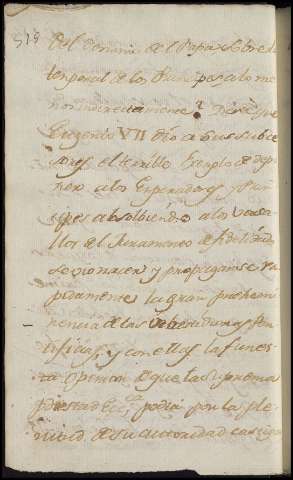 519
del Dominio del Papa sobre lo
temporal de los Principes, a lo me
nos indirectamente? Dirè que
Gregorio VII dio a sus subce
sores el terrible Exemplo de depo
ner a los Emperadores y Prin
cipes absolbiendo a los Vasa
llos del Juramento de fidelidad
se vio nacer y propagarse ra
pidamente la gran preemi
nencia de las
tificias, y con ellas la funes
ta Opinion de que la Suprema
Potestad Ecc.ca podia por la ple
nitud de su autoridad castigar